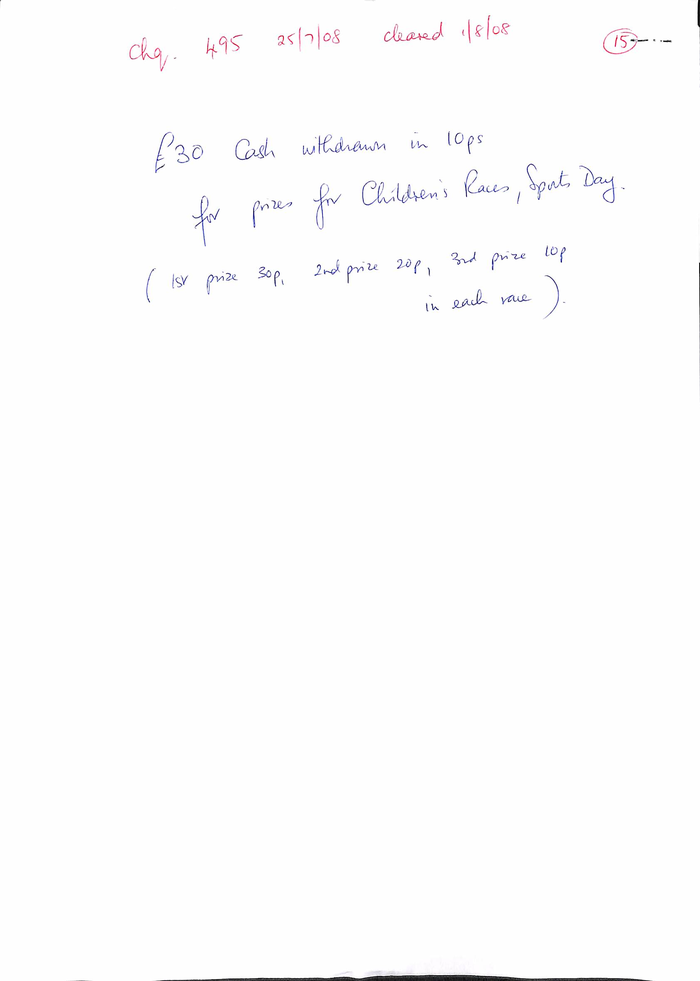 Chq. 495 25/7/08 cleared 1/8/08
15
£30 Cash withdrawn in 10ps
for prizes for Children's Races, Sports Day.
(1st prize 30p, 2nd prize 20p, 3rd prize 10p
in each race).